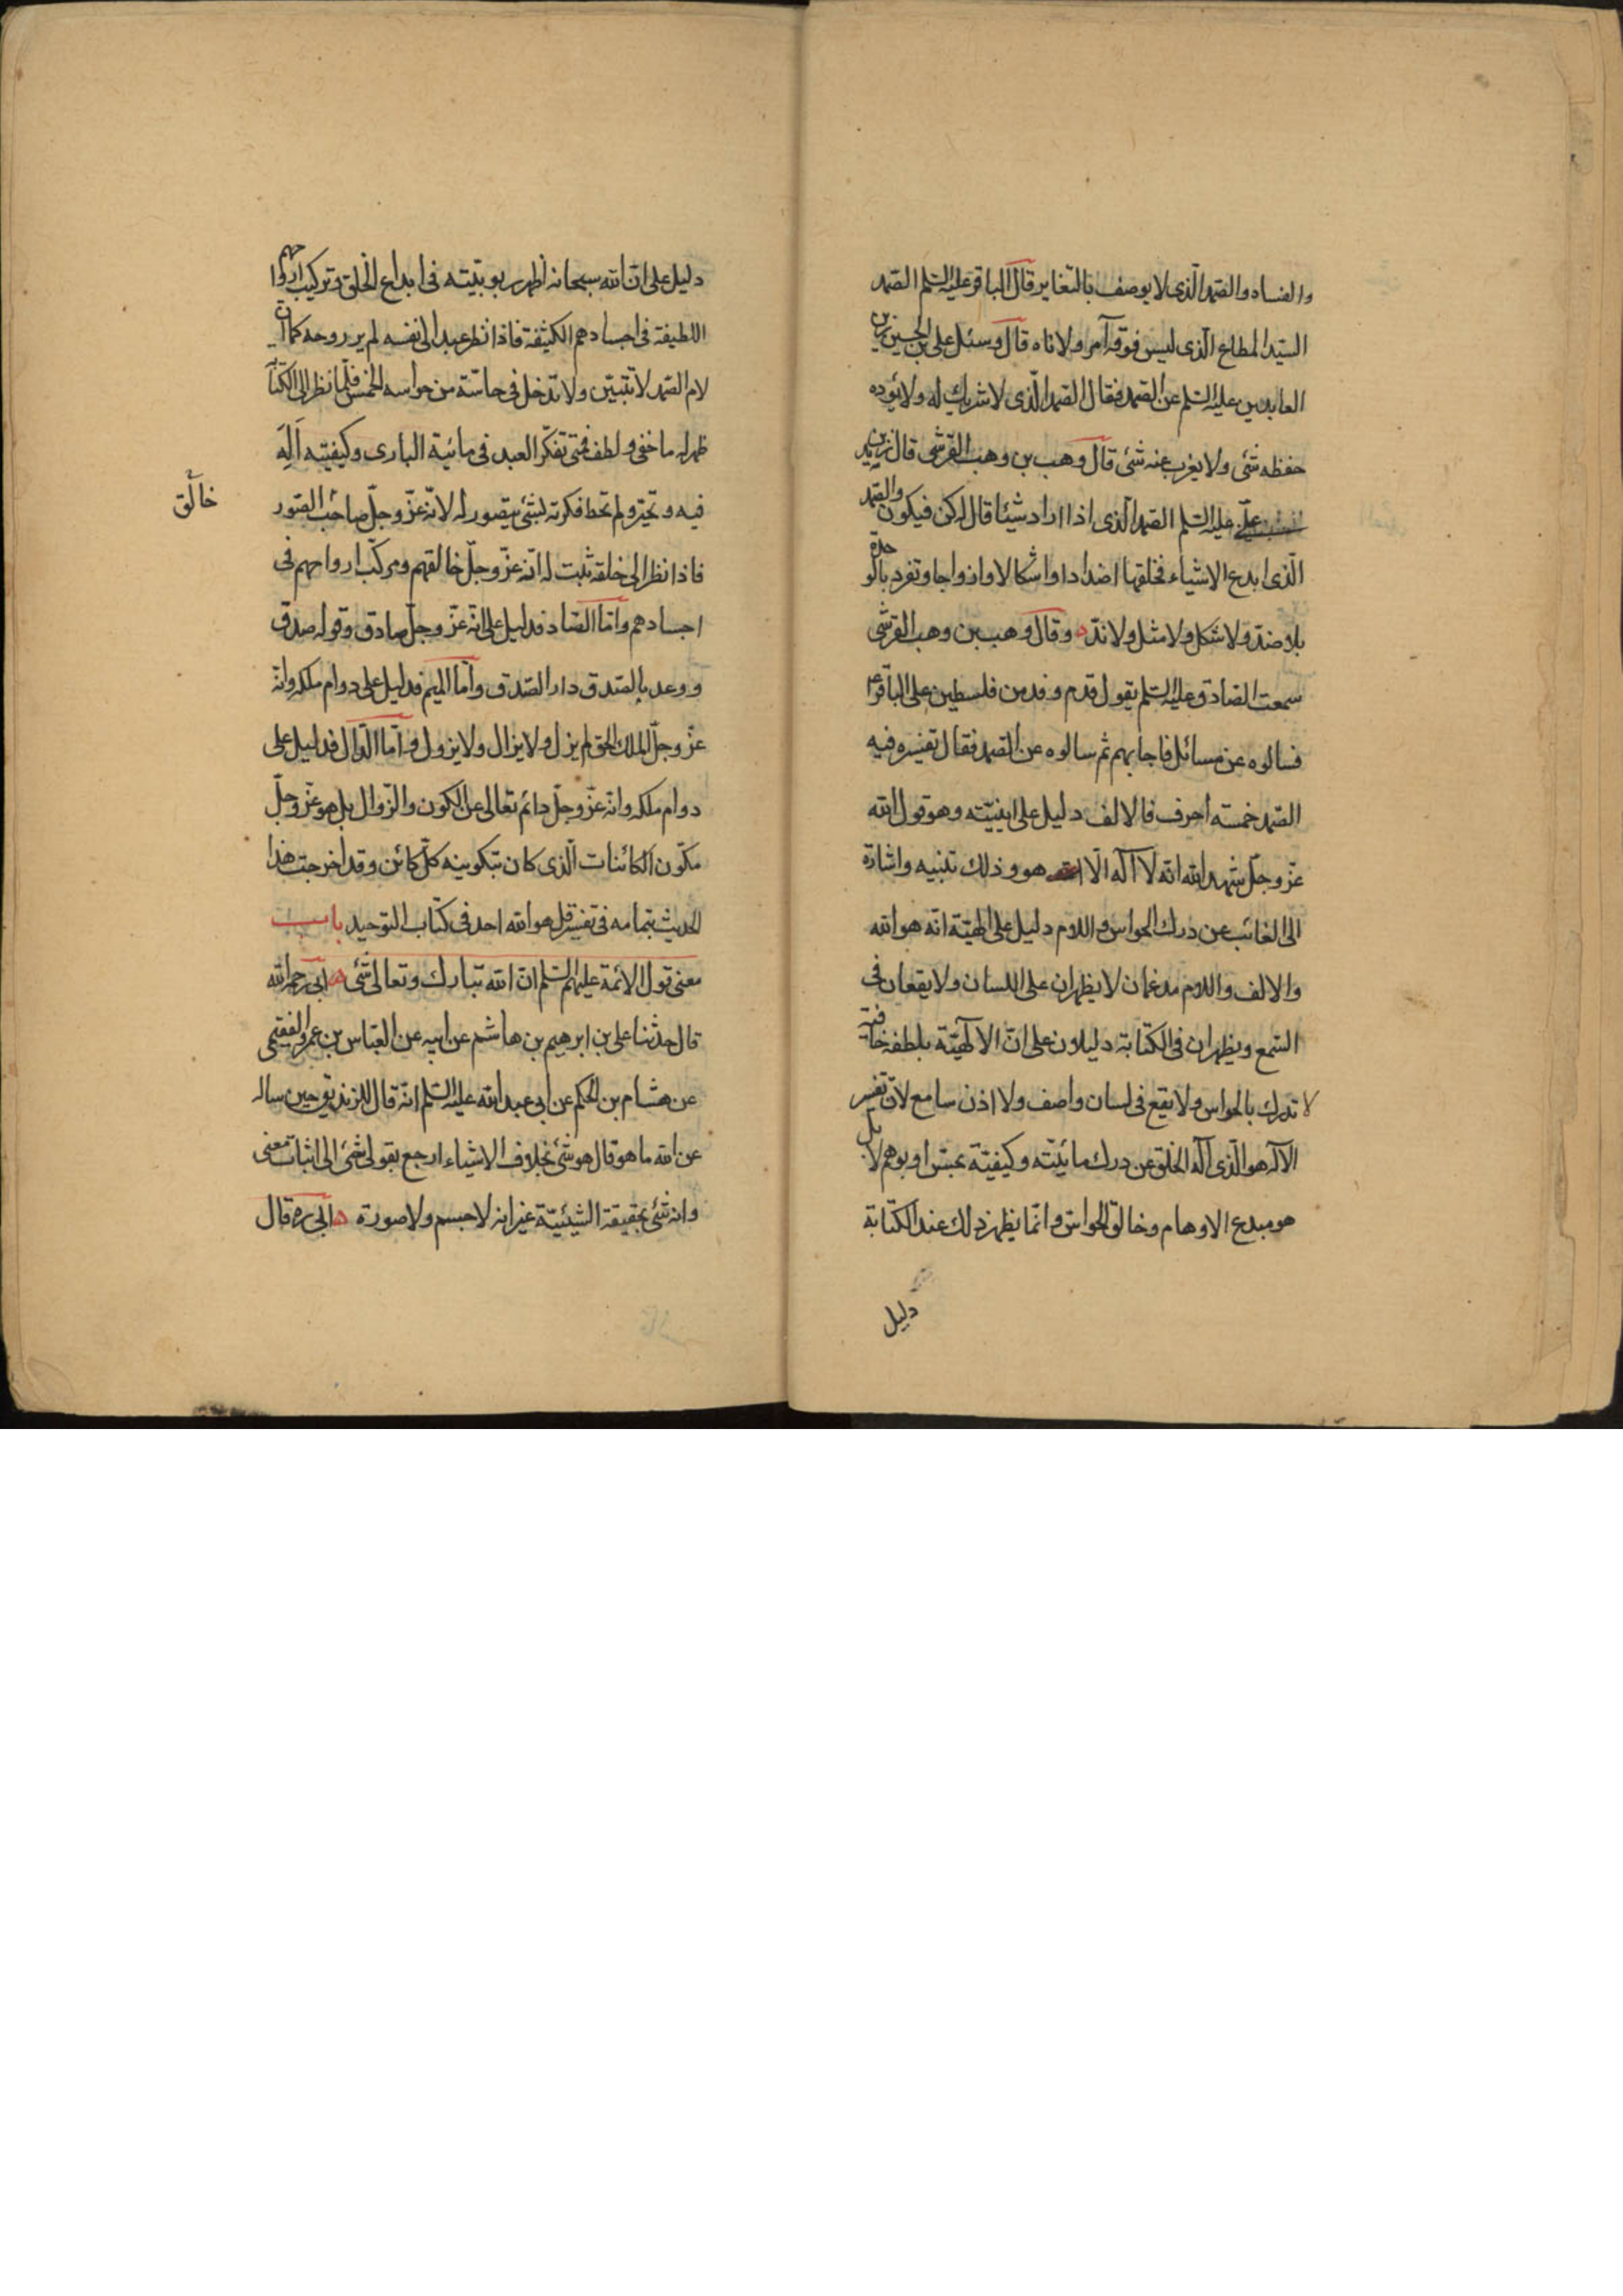 والفساد والصمد الّذى لا يوصف بالتّغاير قال الباقر عليه السّلم الصّمد
السّيد المطاع الّذى ليس فوقه آمر ولا ناه قال وسئل على بن الحسين زين
العابدين عليه السّلم عن الصّمد فقال الصّمد الّذى لا شريك له ولا يؤده
حفظ شئ ولا يعزب عنه شئ قال وهب بن وهب القرشى قال زيد بن
علىّ عليه السّلم الصّمد الّذى اذا اراد شيئا قال له كن فيكون والصّمد
الّذى ابدع الاشياء فخلقها اضدادا واشكالا وازواجا وتفرد بالوحدة
بلا ضدّ ولا شكل ولا مثل ولا ندّ وقال وهب بن وهب القرشى
سمعت الصّادق عليه السّلم يقول قدم وفد من فلسطين على الباقر ع
فسالوه عن مسائل فاجابهم ثم سالوه عن الصّمد فقال تفسيره فيه
الصّمد خمسة احرف فالالف دليل على انيّته وهو قول الله
عزّ وجلّ شهد الله انّه لا آله الّا هو وذلك تنبيه واشارة
الى الغائب عن درك الحواس واللام دليل على الهيّته انّه هو الله
والالف واللام مدغمان لا يظهران على اللسان ولا يقعان فى
السّمع ويظهران فى الكتابة دليلان على انّ الآلهيّته بلطفه خافية
لا تدرك بالحواس ولا يقع فى لسان واصف ولا اذن سامع لانّ تفسير
الآله هو الّذى اله الخلق عن درك مائيّته وكيفيّته بحسّ او بوهم لا بل
هو مبدع الاوهام وخالق الحواس وانّما يظهر ذلك عند الكتابة
دليل
دليل على انّ الله سبحانه اظهر ربوبيّته فى ابداع الخلق وتركيب ارواحهم
اللطيفة فى اجسادهم الكثيفة فاذا نظر عبد الى نفسه لم ير روحه كما ان
لام الصّمد لا تتبيّن ولا تدخل فى حاسّة من حواسه الخمس فلمّا نظر الى الكتابة
ظهر له ما خفى ولطف فمتى تفكّر العبد فى مائية البارى وكيفيّته اَلِهَ
فيه وتحيّر ولم تحط فكرته بشئ يتصور له لانّه عزّ وجلّ خالق الصّور
خالق
فاذا نظر الى خلقه ثبت له انّه عزّ وجلّ خالقهم ومركّب ارواحهم فى
اجسادهم وامّا الصّاد فدليل على انّه عزّ وجلّ صادق وقوله صدق
ووعد بالصّدق دار الصّدق وامّا الميم فدليل على دوام ملكه وانّه
عزّ وجلّ الملك الحق لم يزل ولا يزال ولا يزول وامّا الدّال فدليل على
دوام ملكه وانّه عزّ وجلّ دائم تعالى عن الكون والزّوال بل هو عزّ وجلّ
مكوّن الكائنات الّذى كان بتكوينه كلّ كائن وقد اخرجت هذا
الحديث بتمامه فى تفسير قل هو الله احد فى كتاب التوحيد باب
معنى قول الائمة عليهم السّلم انّ الله تبارك وتعالى شئ ابى رحمه الله
قال حدّثنا على بن ابرهيم بن هاشم عن ابيه عن العبّاس بن عمرو الفقيمى
عن هشام بن الحكم عن ابى عبد الله عليه السّلم انّه قال للزنديق حين ساله
عن الله ما هو قال هو شئ بخلاف الاشياء ارجع بقولى شئ الى اثبات معنى
وانه شئ بحقيقة الشيئيّة غير انه لا جسم ولا صورة ابى ره قال